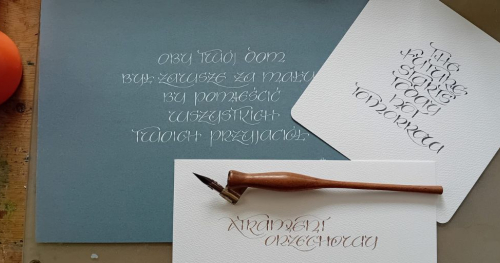 OBY TWÓJ DOM
BYŁ ZAWSZE ZA MAŁY
BY POMIEŚCIĆ
WSZYSTKICH
TWOICH PRZYJACIÓŁ
THE
FUTURE
STARTS
TODAY
NOT
TOMORROW
ATRAMENT
ORZECHOWY